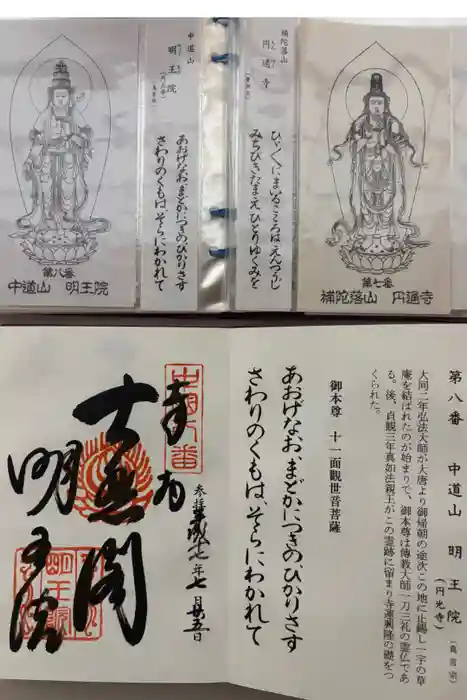 補陀落山
円通寺
ひゞくにまいるこころはえんつうじ
みちびきたまえひとりゆくみを
第七番
補陀落山 円通寺
中道山
明王院
(円光寺)
(真言宗)
あおげなお、まどかにつきの、ひかりさす
さわりのくもは、そらにわかれて
第八番
中道山 明王院
第八番 中道山 明王院 (真言宗)
(円光寺)
大同二年弘法大師が大唐より御帰朝の途次この地に止錫し一宇の草
庵を結ばれたのが始まりで、御本尊は傳教大師一刀三礼の霊仏であ
る。後、貞観三年真如法親王がこの霊跡に留まり寺運興隆の礎をつ
くられた。
御本尊 十一面観世音菩薩
あおげなお、まどかにつきの、ひかりさす
さわりのくもは、そらにわかれて
奉拝
参拝 平成廿七年七月廿五日
大悲閣
明王院